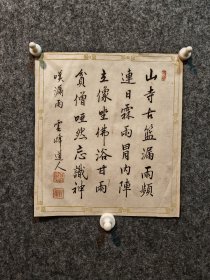 山寺古藍漏雨頻
連日霖雨冒內陣
立像坐佛浴甘雨
貧僧啞然忘識神
嘆漏雨 雲峰道人